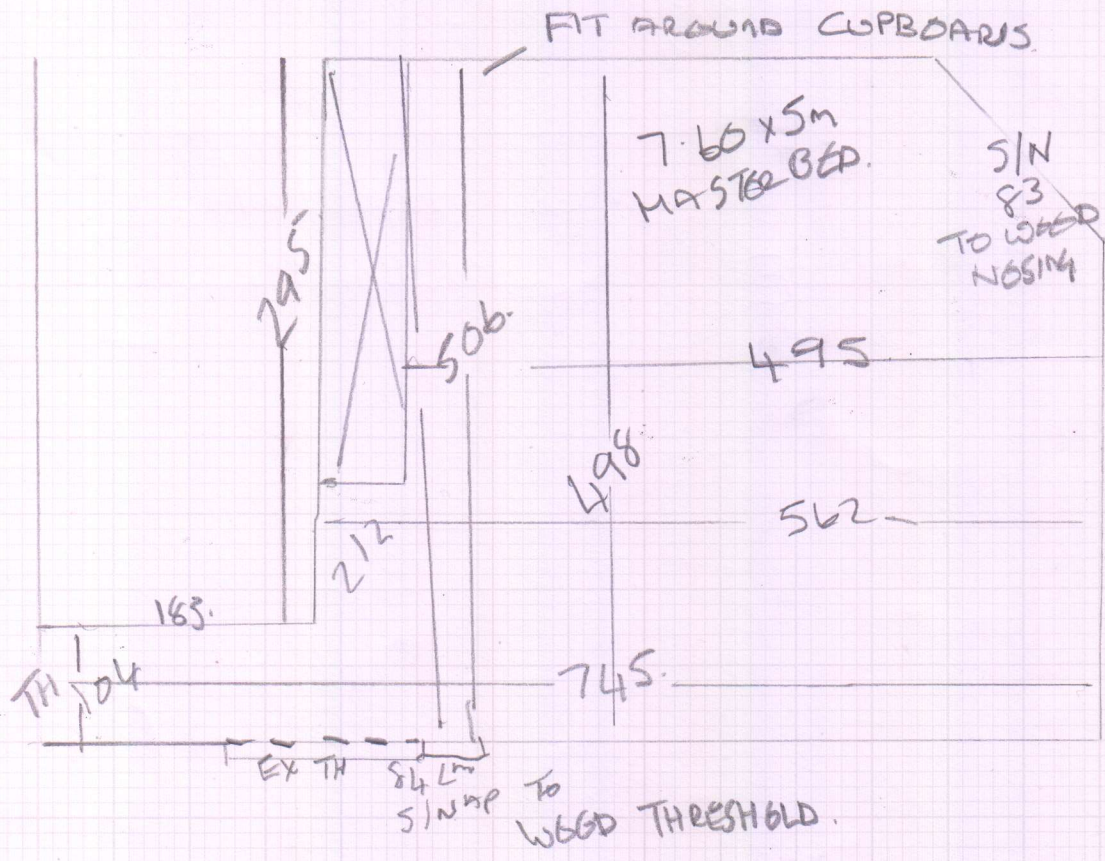 FIT AROUND CUPBOARDS
7.60 x 5m
MASTER BED.
S/N
83
TO WOOD
NOSING
295
506.
495
498
562
212
183.
TH
104
745.
EX TH
84 Lm
S/NAP
TO
WOOD THRESHOLD.